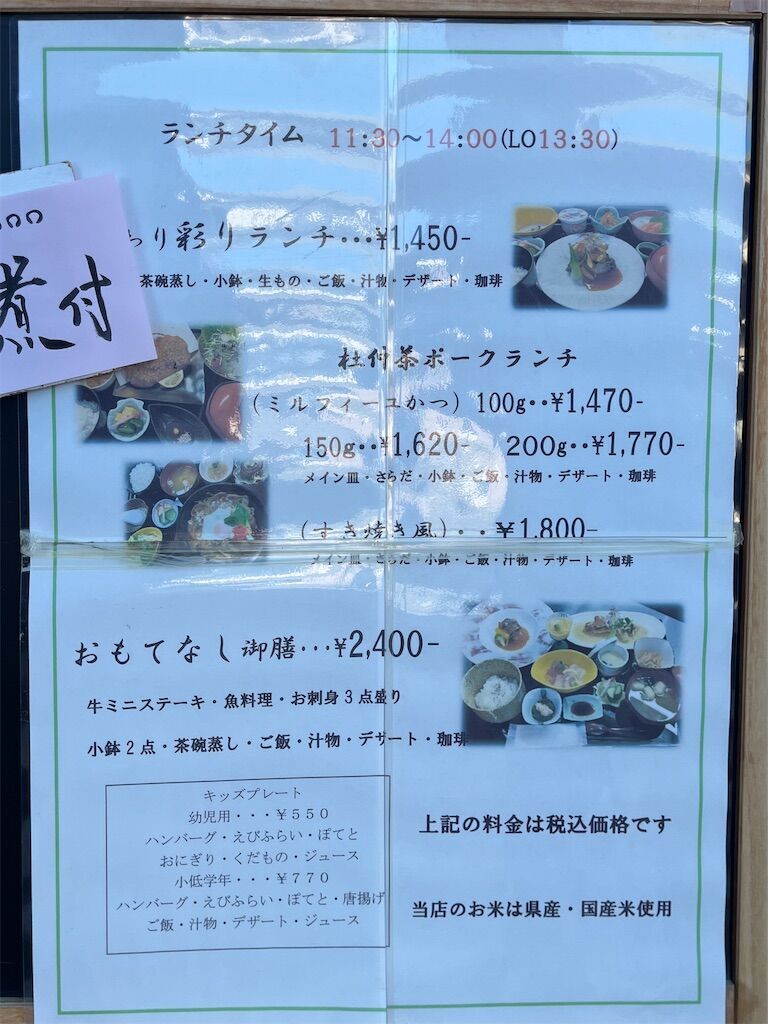 ランチタイム 11:30～14:00(LO13:30)
000
煮付
り彩りランチ･･･¥1,450-
茶碗蒸し・小鉢・生もの・ご飯・汁物・デザート・珈琲
杜仲茶ポークランチ
(ミルフィーユかつ) 100g･･¥1,470-
150g･･¥1,620- 200g･･¥1,770-
メイン皿・さらだ・小鉢・ご飯・汁物・デザート・珈琲
(すき焼き風)・・¥1,800-
メイン皿・さらだ・小鉢・ご飯・汁物・デザート・珈琲
おもてなし御膳･･･¥2,400-
牛ミニステーキ・魚料理・お刺身3点盛り
小鉢2点・茶碗蒸し・ご飯・汁物・デザート・珈琲
キッズプレート
幼児用・・・￥５５０
ハンバーグ・えびふらい・ぽてと
おにぎり・くだもの・ジュース
小低学年・・・￥７７０
ハンバーグ・えびふらい・ぽてと・唐揚げ
ご飯・汁物・デザート・ジュース
上記の料金は税込価格です
当店のお米は県産・国産米使用